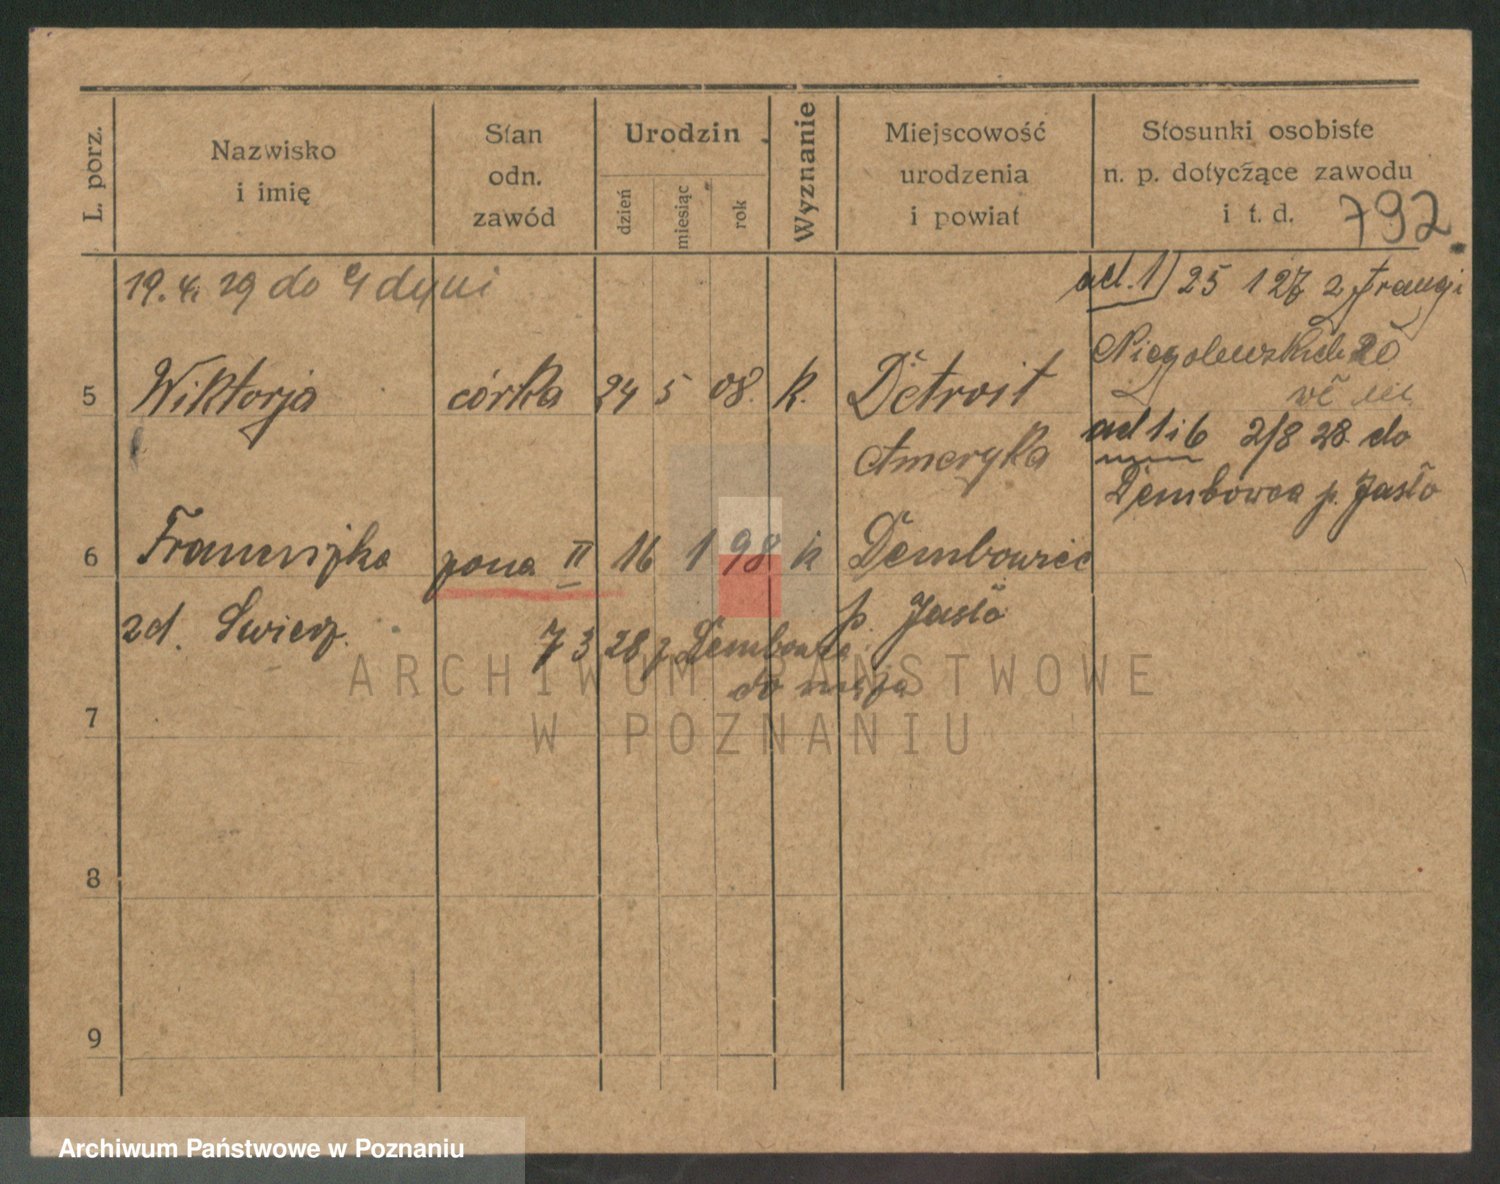 L. porz.
Nazwisko
i imię
Stan
odn.
zawód
Urodzin
dzień
miesiąc
rok
Wyznanie
Miejscowość
urodzenia
i powiat
Stosunki osobiste
n. p. dotyczące zawodu
i t. d.
792
19. 4. 29 do Gdyni
ad. 1) 25 1 27 z Francji
Niegolewskich 20
5 Wiktorja córka 24 5 08. k. Detroit
Ameryka
ad 1 i 6 2/8 28 do
Dembowca p. Jasło
6 Franciszka żona II 16 1 98 k Dembowiec
zd. p. Jasło
7 3 28 z Dembowca
do męża
7
8
9
ARCHIWUM PAŃSTWOWE
W POZNANIU
Archiwum Państwowe w Poznaniu